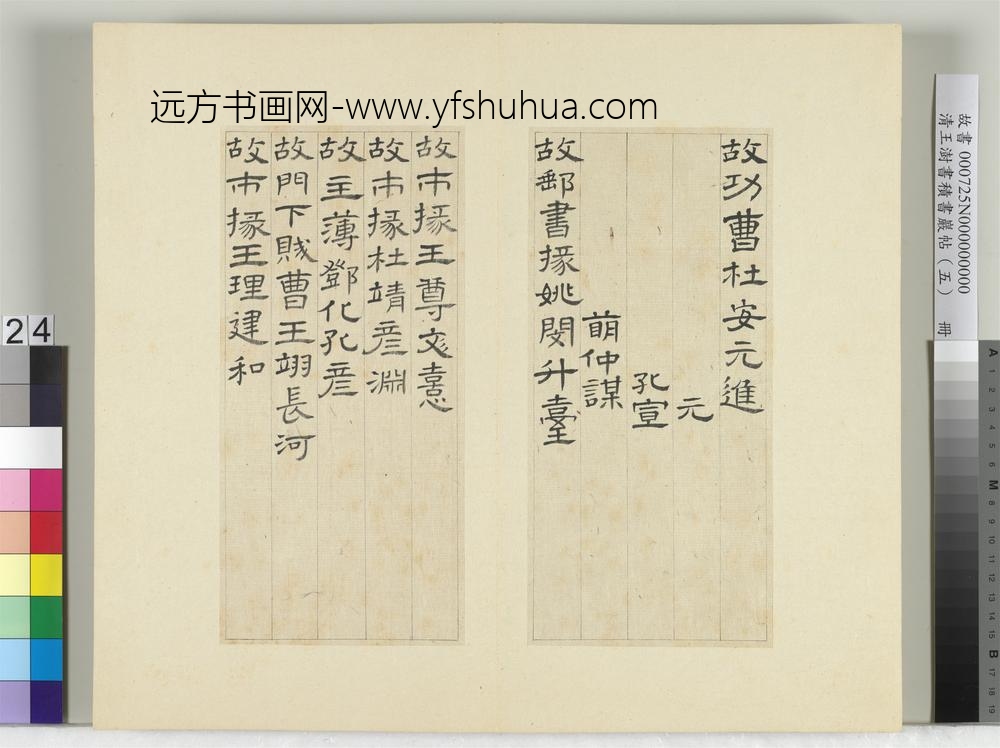 远方书画网-www.yfshuhua.com
故功曹杜安元進
元
孔宣
萌仲謀
故郵書掾姚閔升臺
故市掾王尊文憙
故市掾杜靖彦淵
故主薄鄧化孔彦
故門下賊曹王翊長河
故市掾王理建和
故書000725N000000000
清王澍書積書巖帖（五） 冊
24
A 1 2 3 4 5 6 M 8 9 10 11 12 13 14 15 B 17 18 19